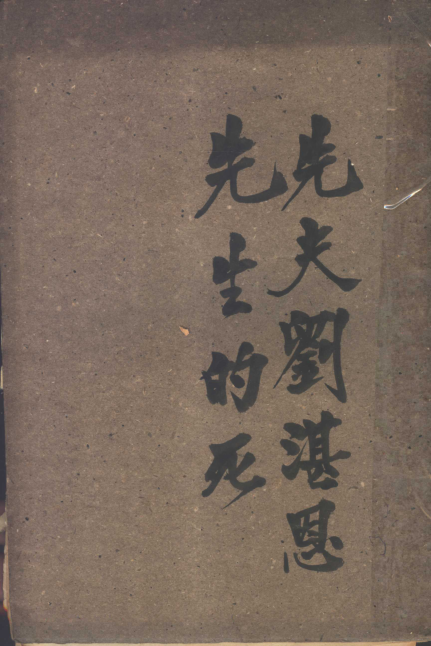 先夫劉湛恩
先生的死